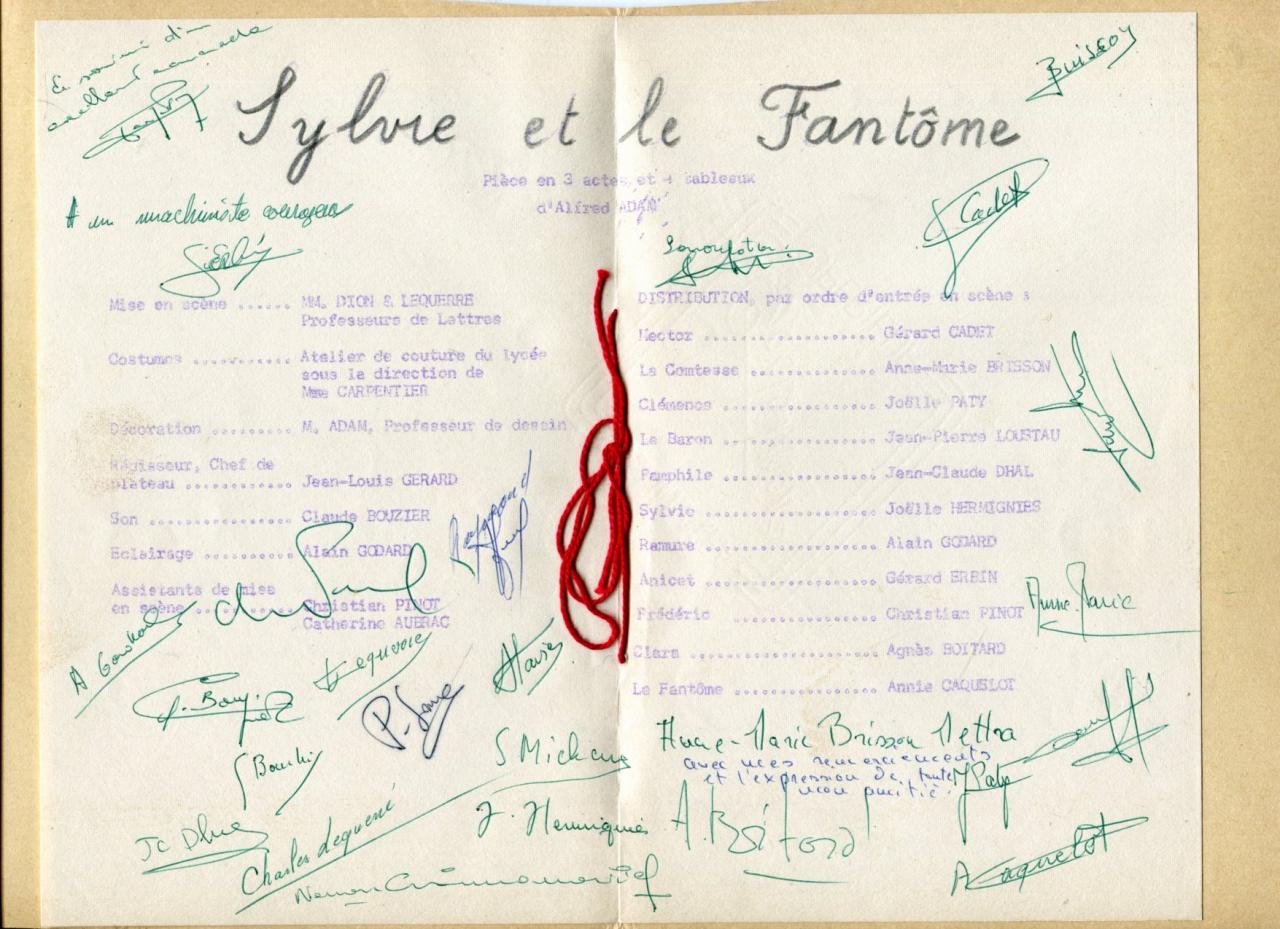 Sylvie et le Fantôme
Pièce en 3 actes et 4 tableaux
d'Alfred ADAM
BUISSON
A un machiniste courageux
G. Cadet
Mise en scène ...... MM. DION & LEQUERRE
Professeurs de Lettres
Costumes ............ Atelier de couture du lycée
sous la direction de
Mme CARPENTIER
Décoration ......... M. ADAM, Professeur de dessin
Régisseur, Chef de
plateau ............ Jean-Louis GERARD
Son ................ Claude BOUZIER
Eclairage .......... Alain GODARD
Assistants de mise
en scène ........... Christian PINOT
Catherine AUBRAC
DISTRIBUTION, par ordre d'entrée en scène :
Hector ..................... Gérard CADET
La Comtesse ................ Anne-Marie BRISSON
Clémence ................... Joëlle PATY
Le Baron ................... Jean-Pierre LOUSTAU
Pamphile ................... Jean-Claude DHAL
Sylvie ..................... Joëlle HERMIGNIES
Ramure ..................... Alain GODARD
Anicet ..................... Gérard ERBIN
Frédéric ................... Christian PINOT
Clara ...................... Agnès BOITARD
Le Fantôme ................. Annie CAQUELOT
Raymond
Anne-Marie
Lequerre
S Michaux
Anne-Marie Brisson Mettra
avec mes remerciements
et l'expression de toute
mon amitié.
J Paty
Charles Lequerré
J. Hermignies
A. Boitard
A Caquelot